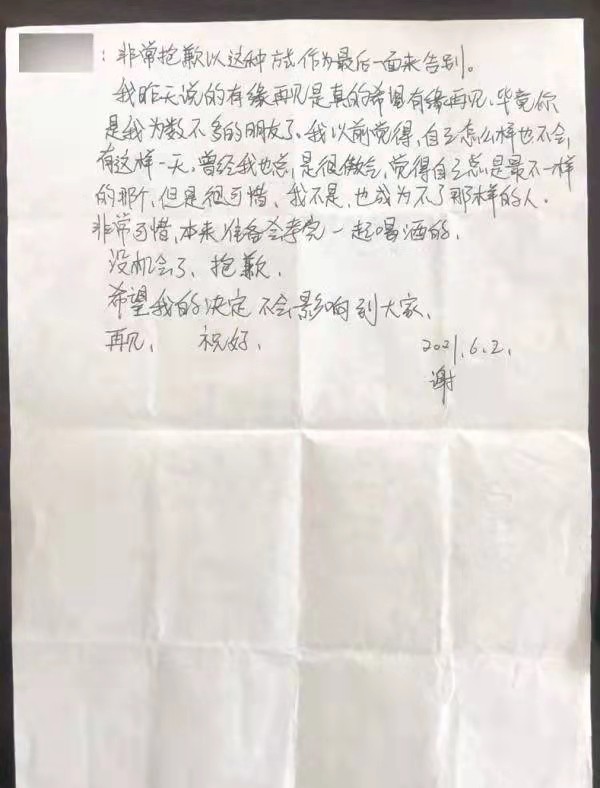 ：非常抱歉以这种方式作为最后一面来告别。
我昨天说的有缘再见是真的希望有缘再见、毕竟你
是我为数不多的朋友了、我以前觉得，自己怎么样也不会，
有这样一天，曾经我也总是很傲气，觉得自己总是最不一样
的那个，但是很可惜、我不是、也成为不了那样的人.
非常可惜，本来准备会考完一起喝酒的、
没机会了、抱歉、
希望我的决定不会影响到大家、
再见、 祝好、 2021.6.2.
谢